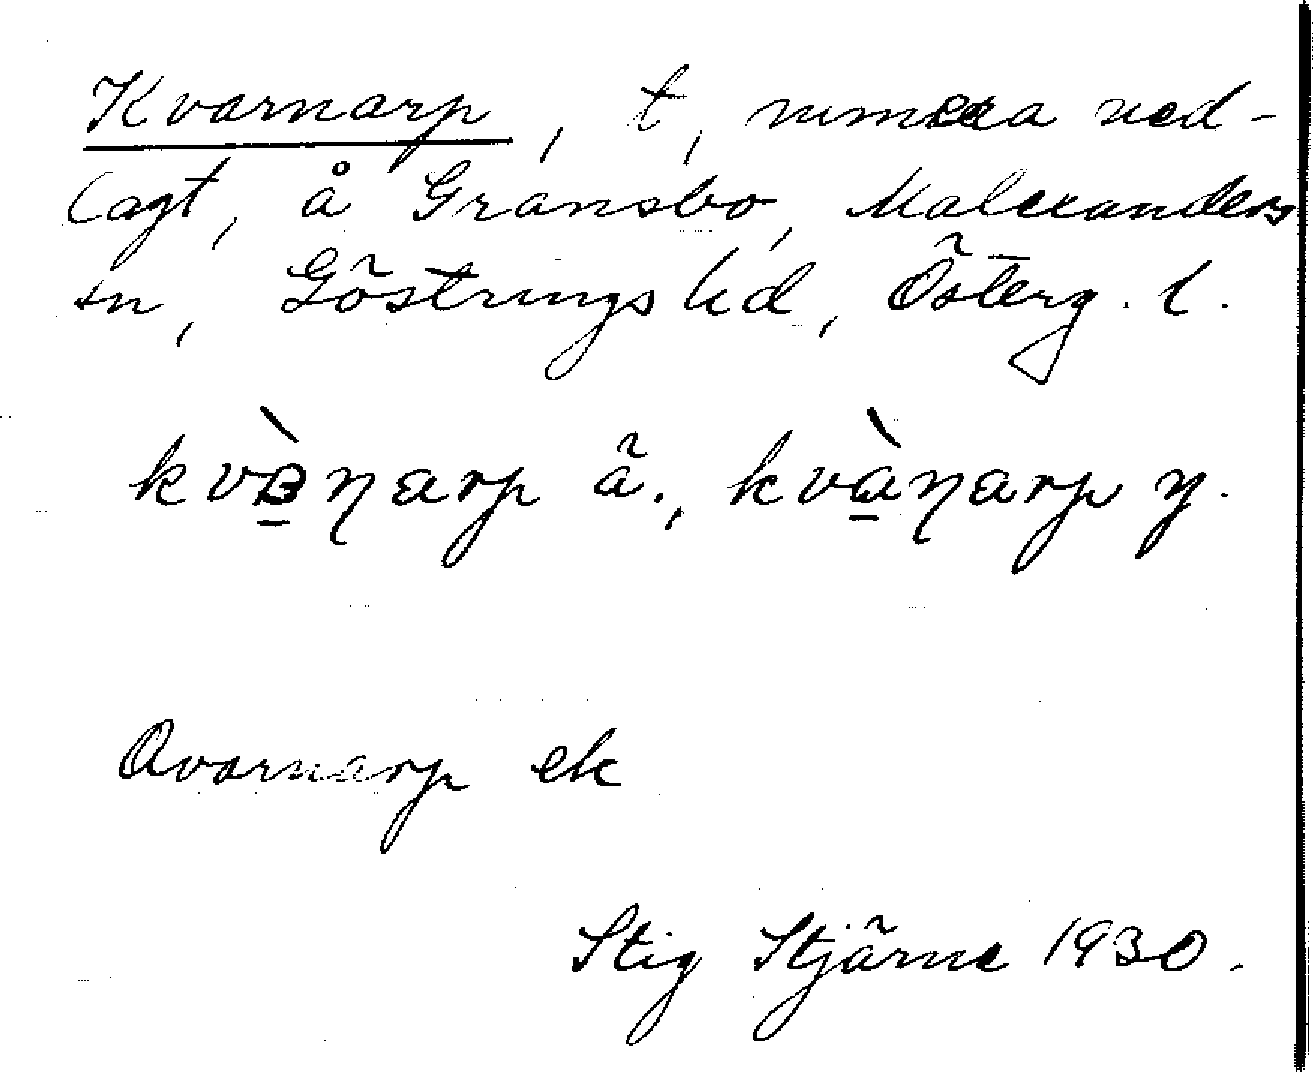 Kvarnarp, t, numera ned-
lagt, å Gransbo, Malexanders
sn, Göstrings hd, Österg. l.
kvɐ̀ɳarp ä., kvàɳarp y.
Qvarnarp ek
Stig Stjärne 1930.